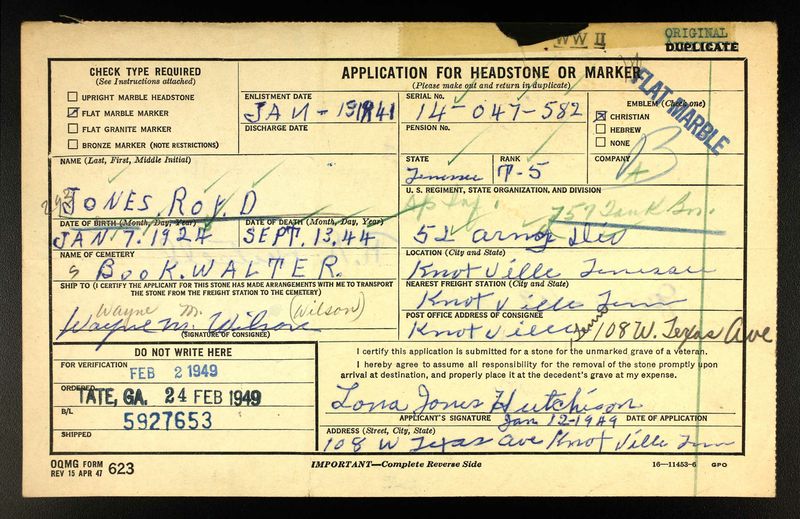 WW II
ORIGINAL
DUPLICATE
CHECK TYPE REQUIRED
(See Instructions attached)
UPRIGHT MARBLE HEADSTONE
FLAT MARBLE MARKER
FLAT GRANITE MARKER
BRONZE MARKER (NOTE RESTRICTIONS)
APPLICATION FOR HEADSTONE OR MARKER
(Please make out and return in duplicate)
ENLISTMENT DATE
JAN - 1941
DISCHARGE DATE
SERIAL No.
14-047-582
PENSION No.
EMBLEM (Check one)
CHRISTIAN
HEBREW
NONE
FLAT MARBLE
STATE
Tenessee
RANK
T-5
COMPANY
B
NAME (Last, First, Middle Initial)
JONES. ROYD
U. S. REGIMENT, STATE ORGANIZATION, AND DIVISION
757 Tank Bn.
52 army Div
DATE OF BIRTH (Month, Day, Year)
JAN 7. 1924
DATE OF DEATH (Month, Day, Year)
SEPT. 13. 44
NAME OF CEMETERY
BOOK. WALTER.
LOCATION (City and State)
Knot Ville Tenessee
SHIP TO (I CERTIFY THE APPLICANT FOR THIS STONE HAS MADE ARRANGEMENTS WITH ME TO TRANSPORT
THE STONE FROM THE FREIGHT STATION TO THE CEMETERY)
Wayne M. (Wilson)
Wayne M. Wilson
(SIGNATURE OF CONSIGNEE)
NEAREST FREIGHT STATION (City and State)
Knot Ville Tenn
POST OFFICE ADDRESS OF CONSIGNEE
Knot Ville Tenn 108 W. Texas Ave
DO NOT WRITE HERE
FOR VERIFICATION
FEB 2 1949
ORDERED
TATE, GA. 24 FEB 1949
B/L
5927653
SHIPPED
I certify this application is submitted for a stone for the unmarked grave of a veteran.
I hereby agree to assume all responsibility for the removal of the stone promptly upon
arrival at destination, and properly place it at the decedent's grave at my expense.
Lona Jones Hutchison
APPLICANT'S SIGNATURE
Jan 12-1949
DATE OF APPLICATION
ADDRESS (Street, City, State)
108 W Texas Ave Knot Ville Tenn
OQMG FORM
REV 15 APR 47
623
IMPORTANT—Complete Reverse Side
16—11453-6 GPO